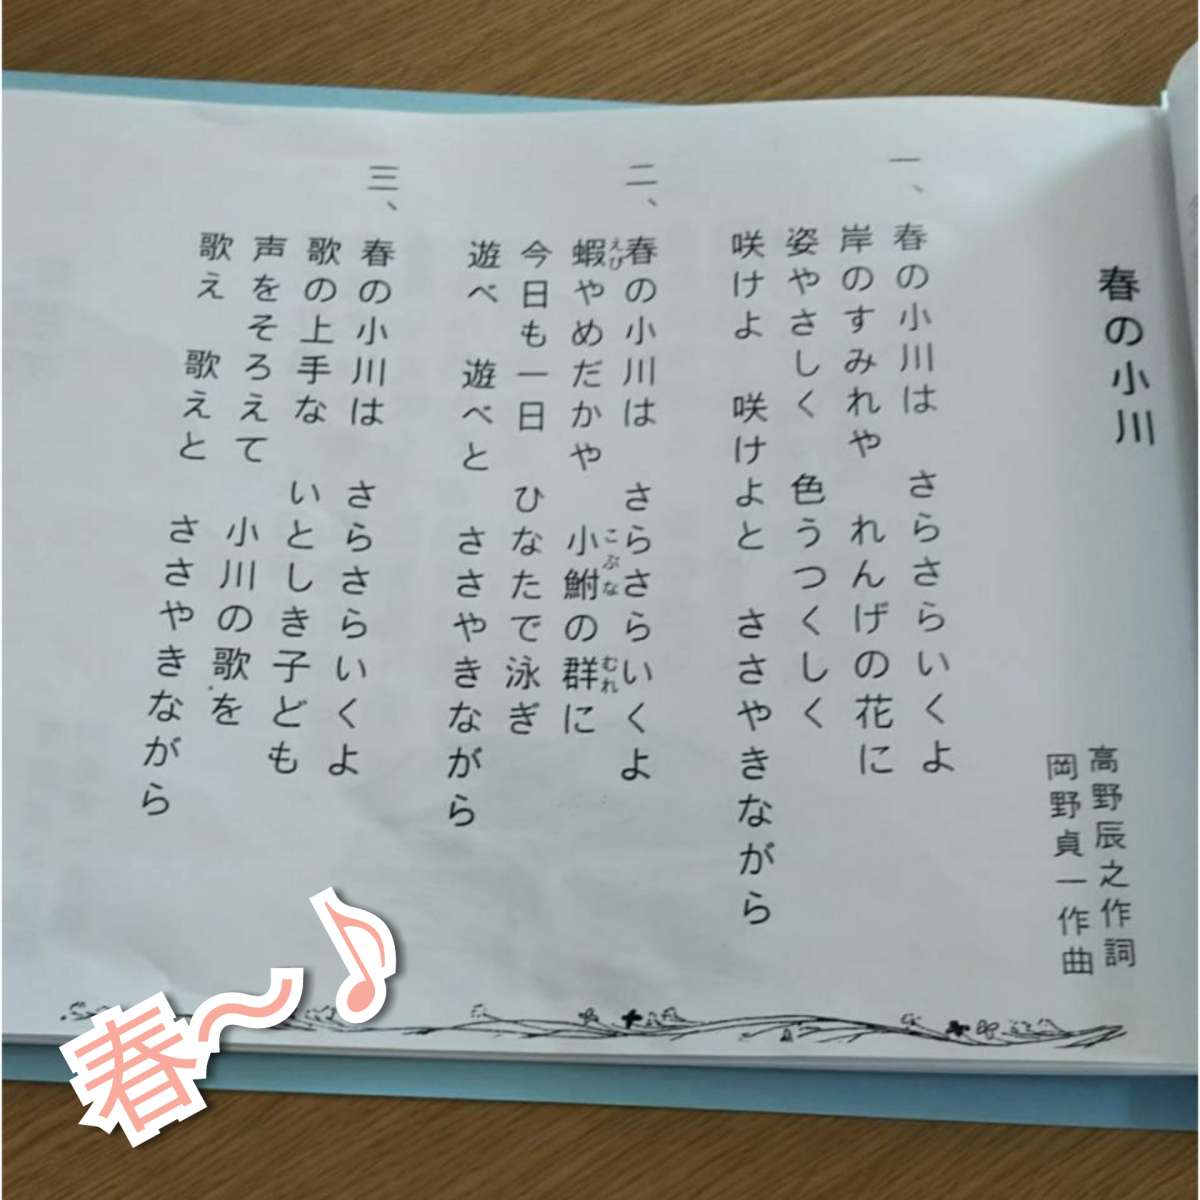 春の小川
高野辰之作詞
岡野貞一作曲
一、春の小川は　さらさらいくよ
岸のすみれや　れんげの花に
姿やさしく　色うつくしく
咲けよ　咲けよと　ささやきながら
二、春の小川は　さらさらいくよ
蝦やめだかや　小鮒の群に
えび　こぶな　むれ
今日も一日　ひなたで泳ぎ
遊べ　遊べと　ささやきながら
三、春の小川は　さらさらいくよ
歌の上手な　いとしき子ども
声をそろえて　小川の歌を
歌え　歌えと　ささやきながら
春〜♪